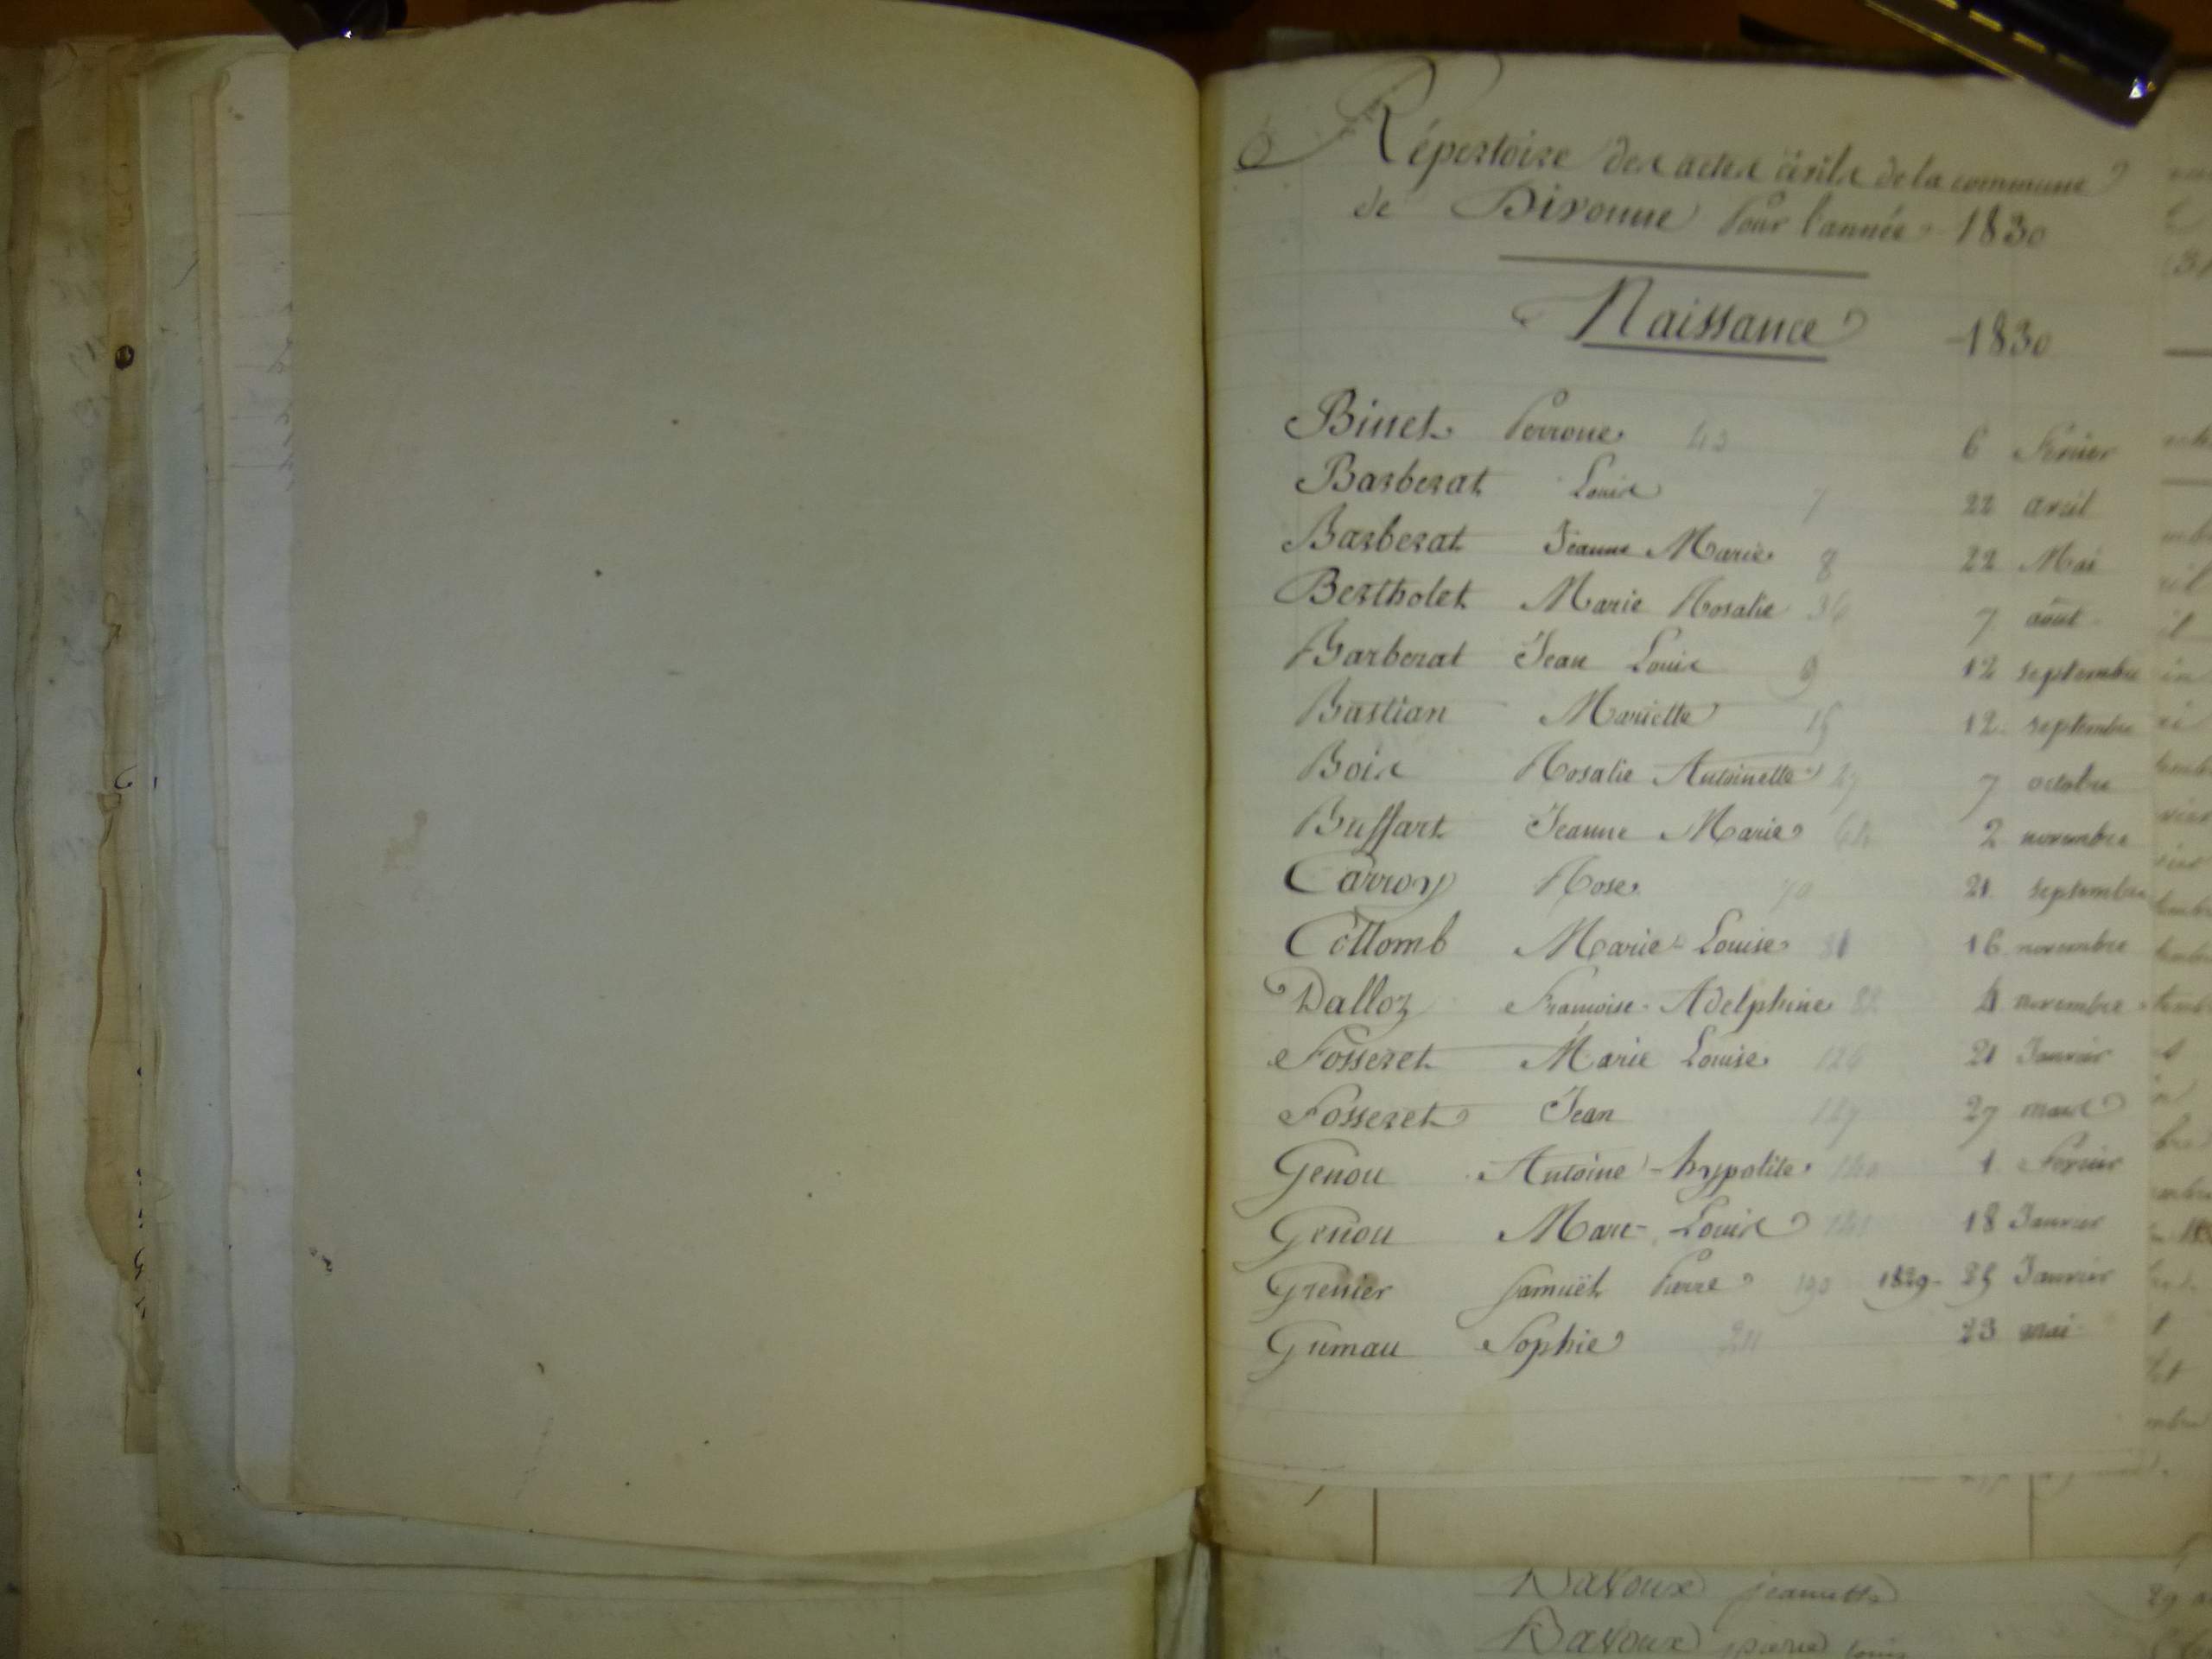 Répertoire des actes civils de la commune
de Divonne Pour l'année 1830
Naissance 1830
Binet Perrone 43 6 Février
Barberat Louis 7 22 avril
Barberat Jeanne Marie 8 22 Mai
Bertholet Marie Rosalie 36 7 août
Barberat Jean Louis 9 12 septembre
Bastian Mariette 15 12 septembre
Bois Rosalie Antoinette 7 octobre
Buffart Jeanne Marie 64 2 novembre
Carroy Rose 70 21 septembre
Collomb Marie Louise 81 16 novembre
Dalloz Françoise Adelphine 4 novembre
Fosseret Marie Louise 126 21 Janvier
Fosseret Jean 127 27 mars
Genou Antoine hypolite 1 Février
Genou Marc Louis 18 Janvier
Grenier Samuël Pierre 193 1829 25 Janvier
Gumau Sophie 23 mai
Davoux jeanette 29
Davoux pierre louis